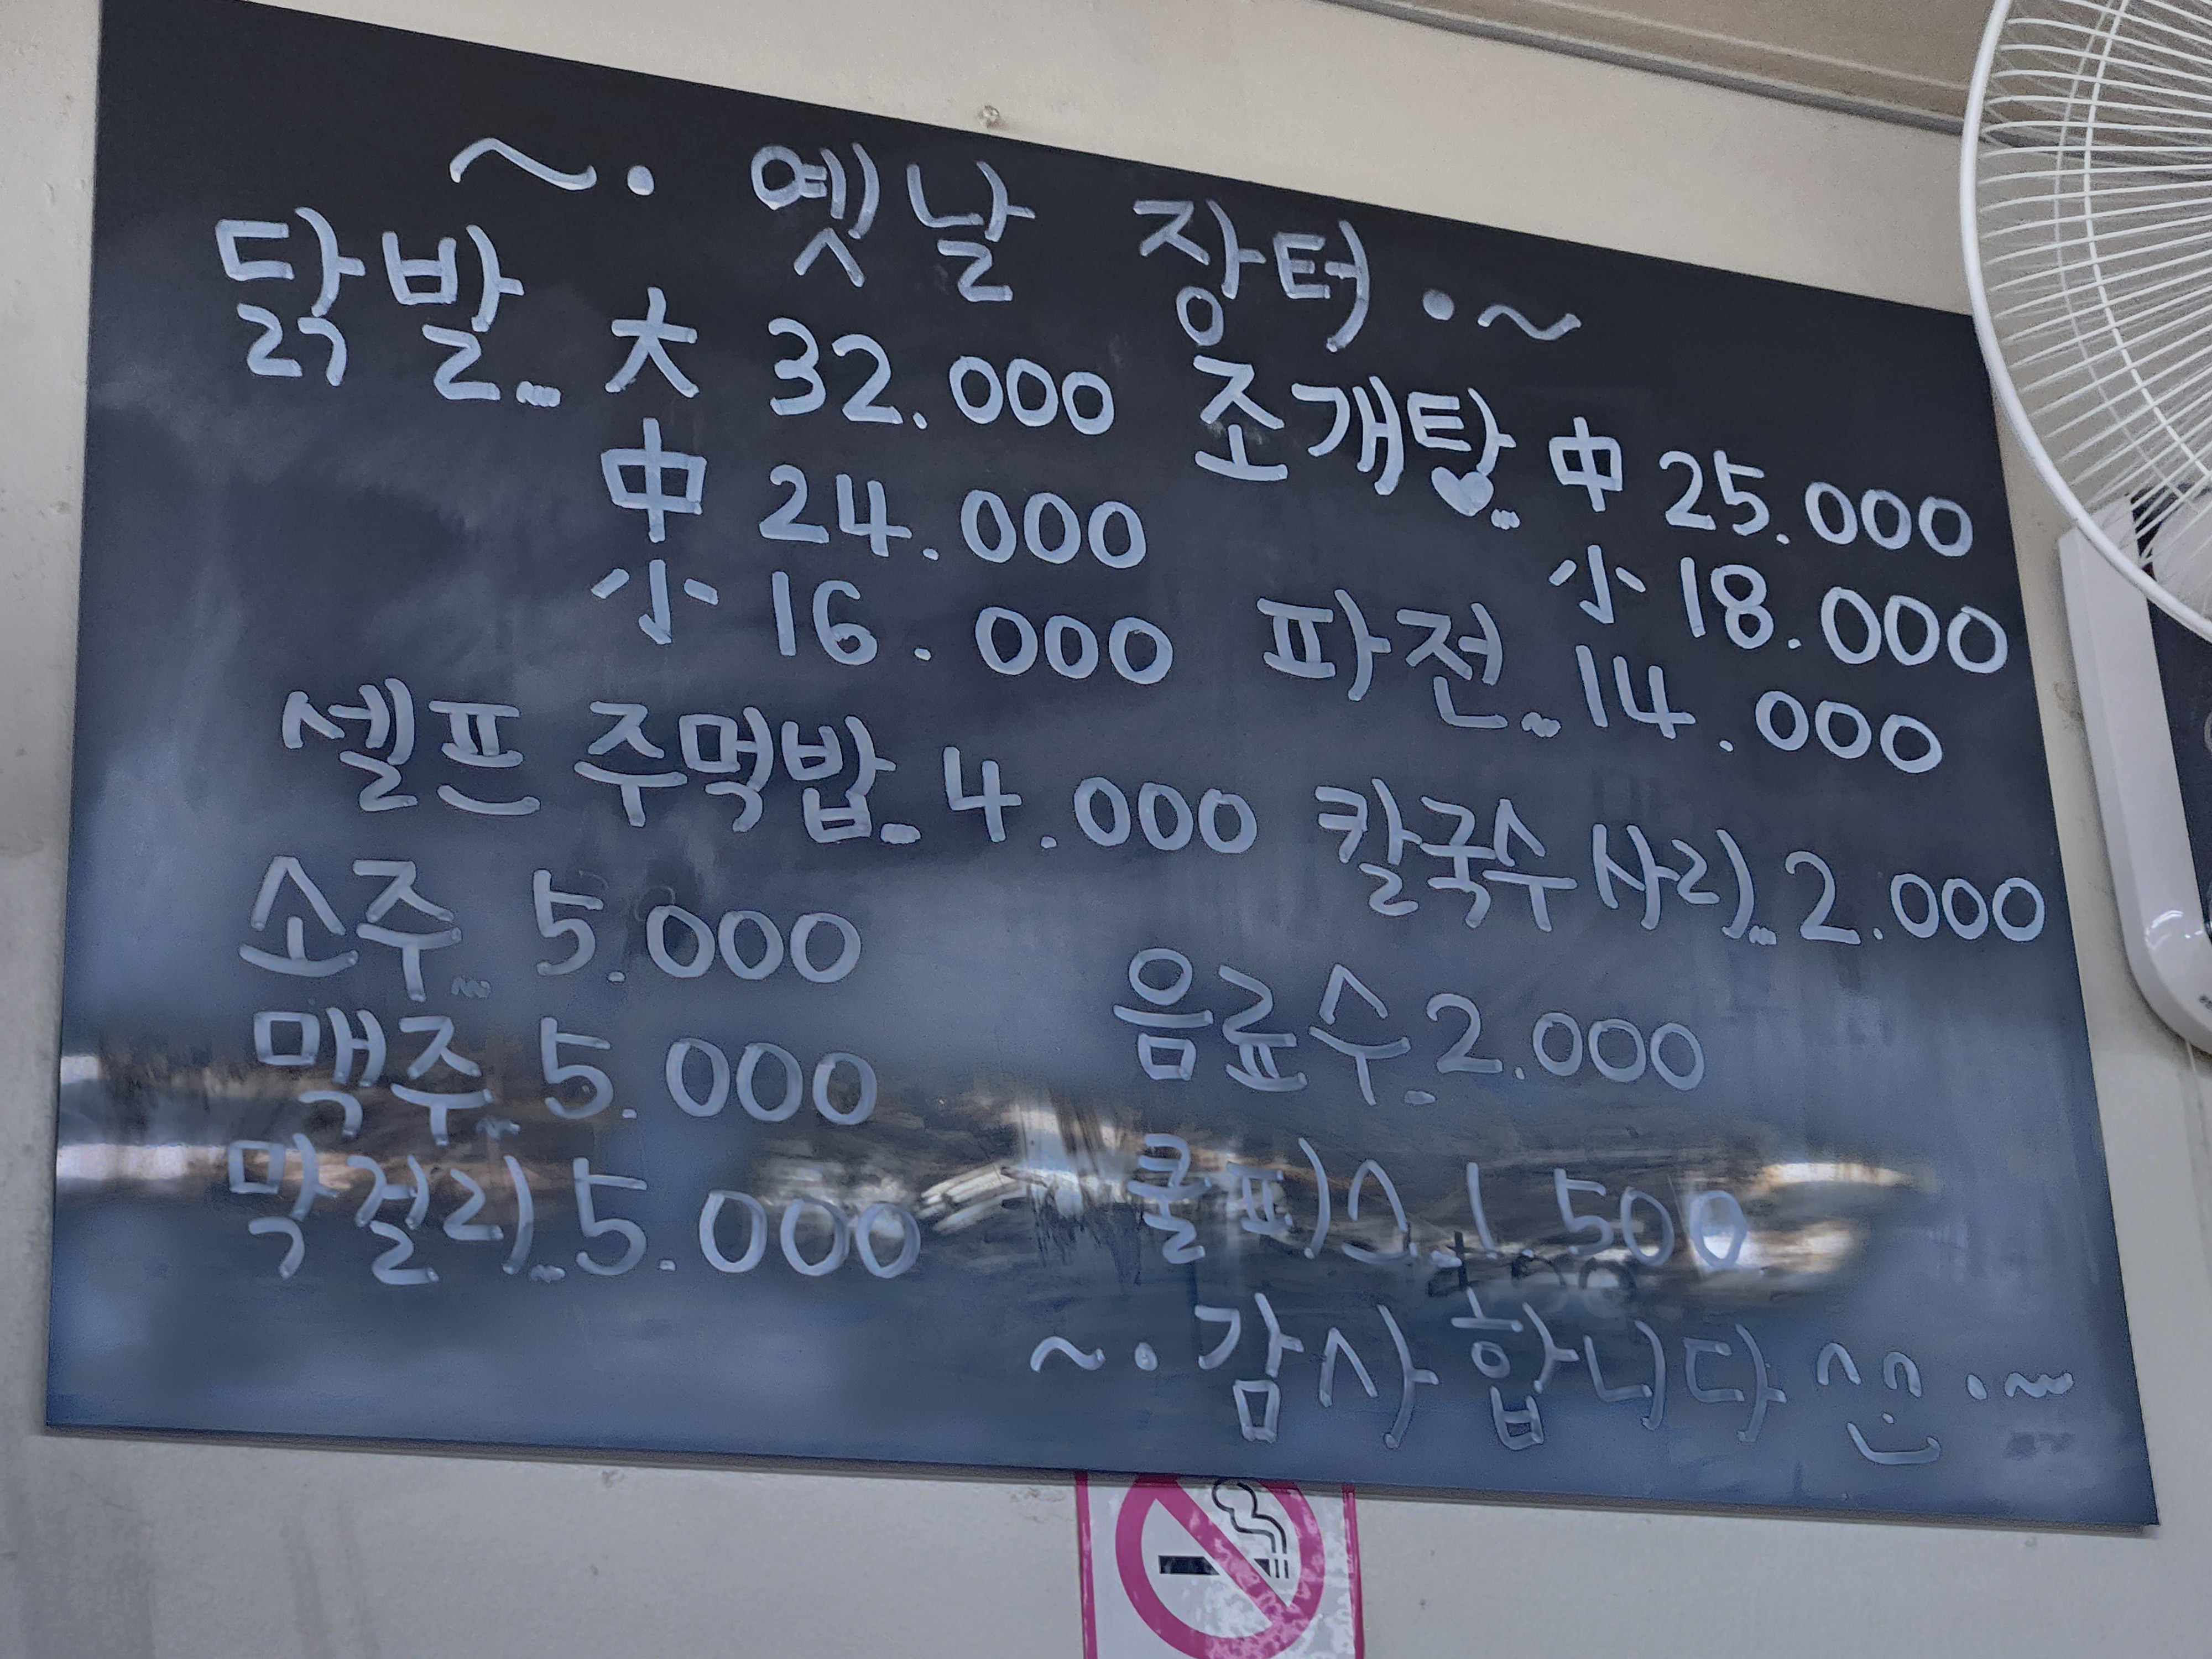 ~· 옛날 장터 ·~
닭발... 大 32.000
中 24.000
小 16.000
셀프 주먹밥... 4.000
소주... 5.000
맥주... 5.000
막걸리... 5.000
조개탕♥... 中 25.000
小 18.000
파전... 14.000
칼국수 사리... 2.000
음료수... 2.000
쿨피스... 1.500
~· 감사합니다 ^^ ·~